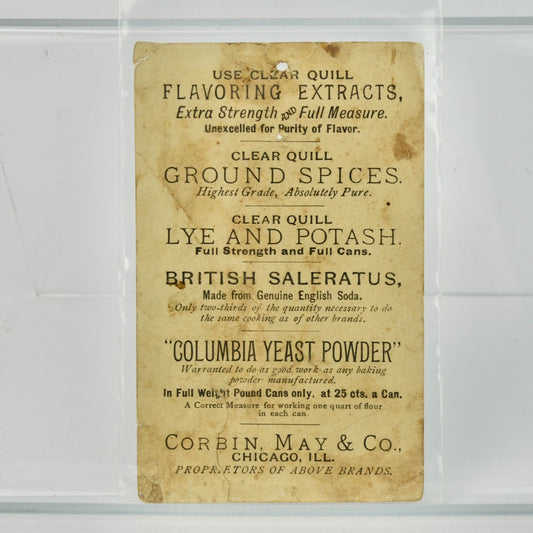 USE CLEAR QUILL
FLAVORING EXTRACTS,
Extra Strength AND Full Measure.
Unexcelled for Purity of Flavor.
CLEAR QUILL
GROUND SPICES.
Highest Grade, Absolutely Pure.
CLEAR QUILL
LYE AND POTASH.
Full Strength and Full Cans.
BRITISH SALERATUS,
Made from Genuine English Soda.
Only two-thirds of the quantity necessary to do
the same cooking as of other brands.
"COLUMBIA YEAST POWDER"
Warranted to do as good work as any baking
powder manufactured.
In Full Weight Pound Cans only, at 25 cts. a Can.
A Correct Measure for working one quart of flour
in each can.
CORBIN, MAY & CO.,
CHICAGO, ILL.
PROPRIETORS OF ABOVE BRANDS.